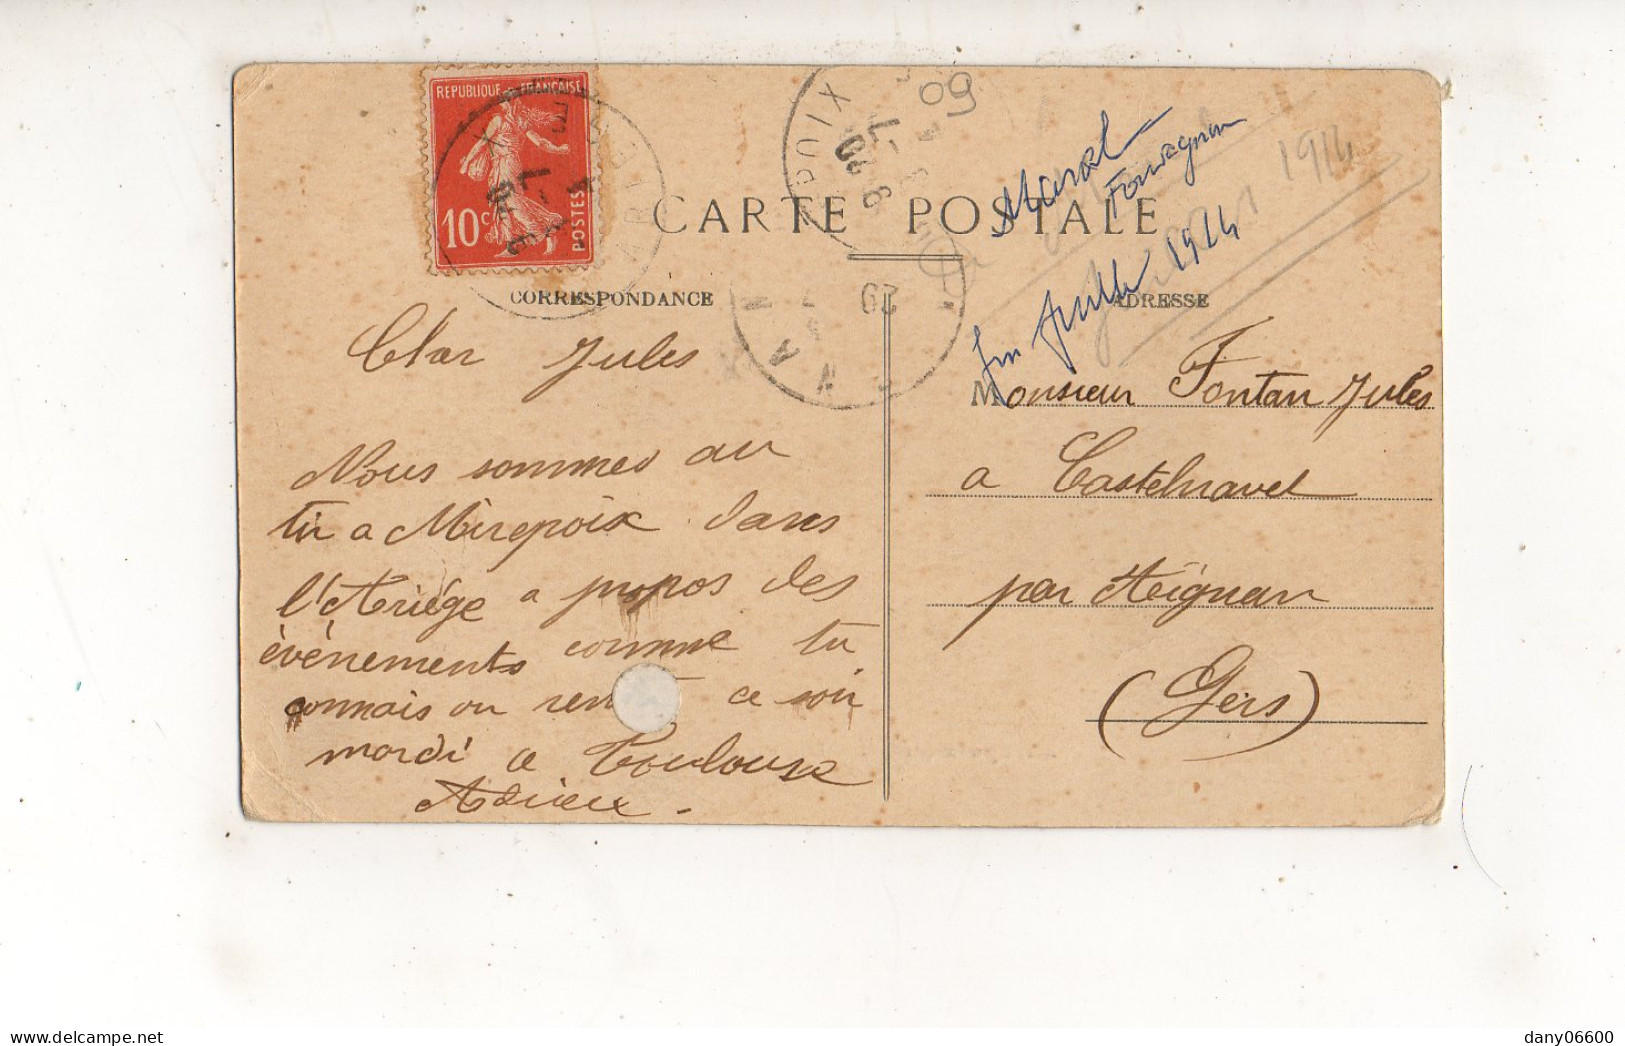 REPUBLIQUE FRANÇAISE
10c
POSTES
POIX
8-20
09
CARTE POSTALE
Marcel
1914
fin juillet 1914
CORRESPONDANCE
29
ADRESSE
Cher Jules
Nous sommes au
tir a Mirepoix dans
l'Ariége a propos des
événements comme tu
connais on ren ce soir
mardi a Toulouse
Adieu.
Monsieur Fontan Jules
a Castelnavet
par Aignan
(Gers)
dany06600